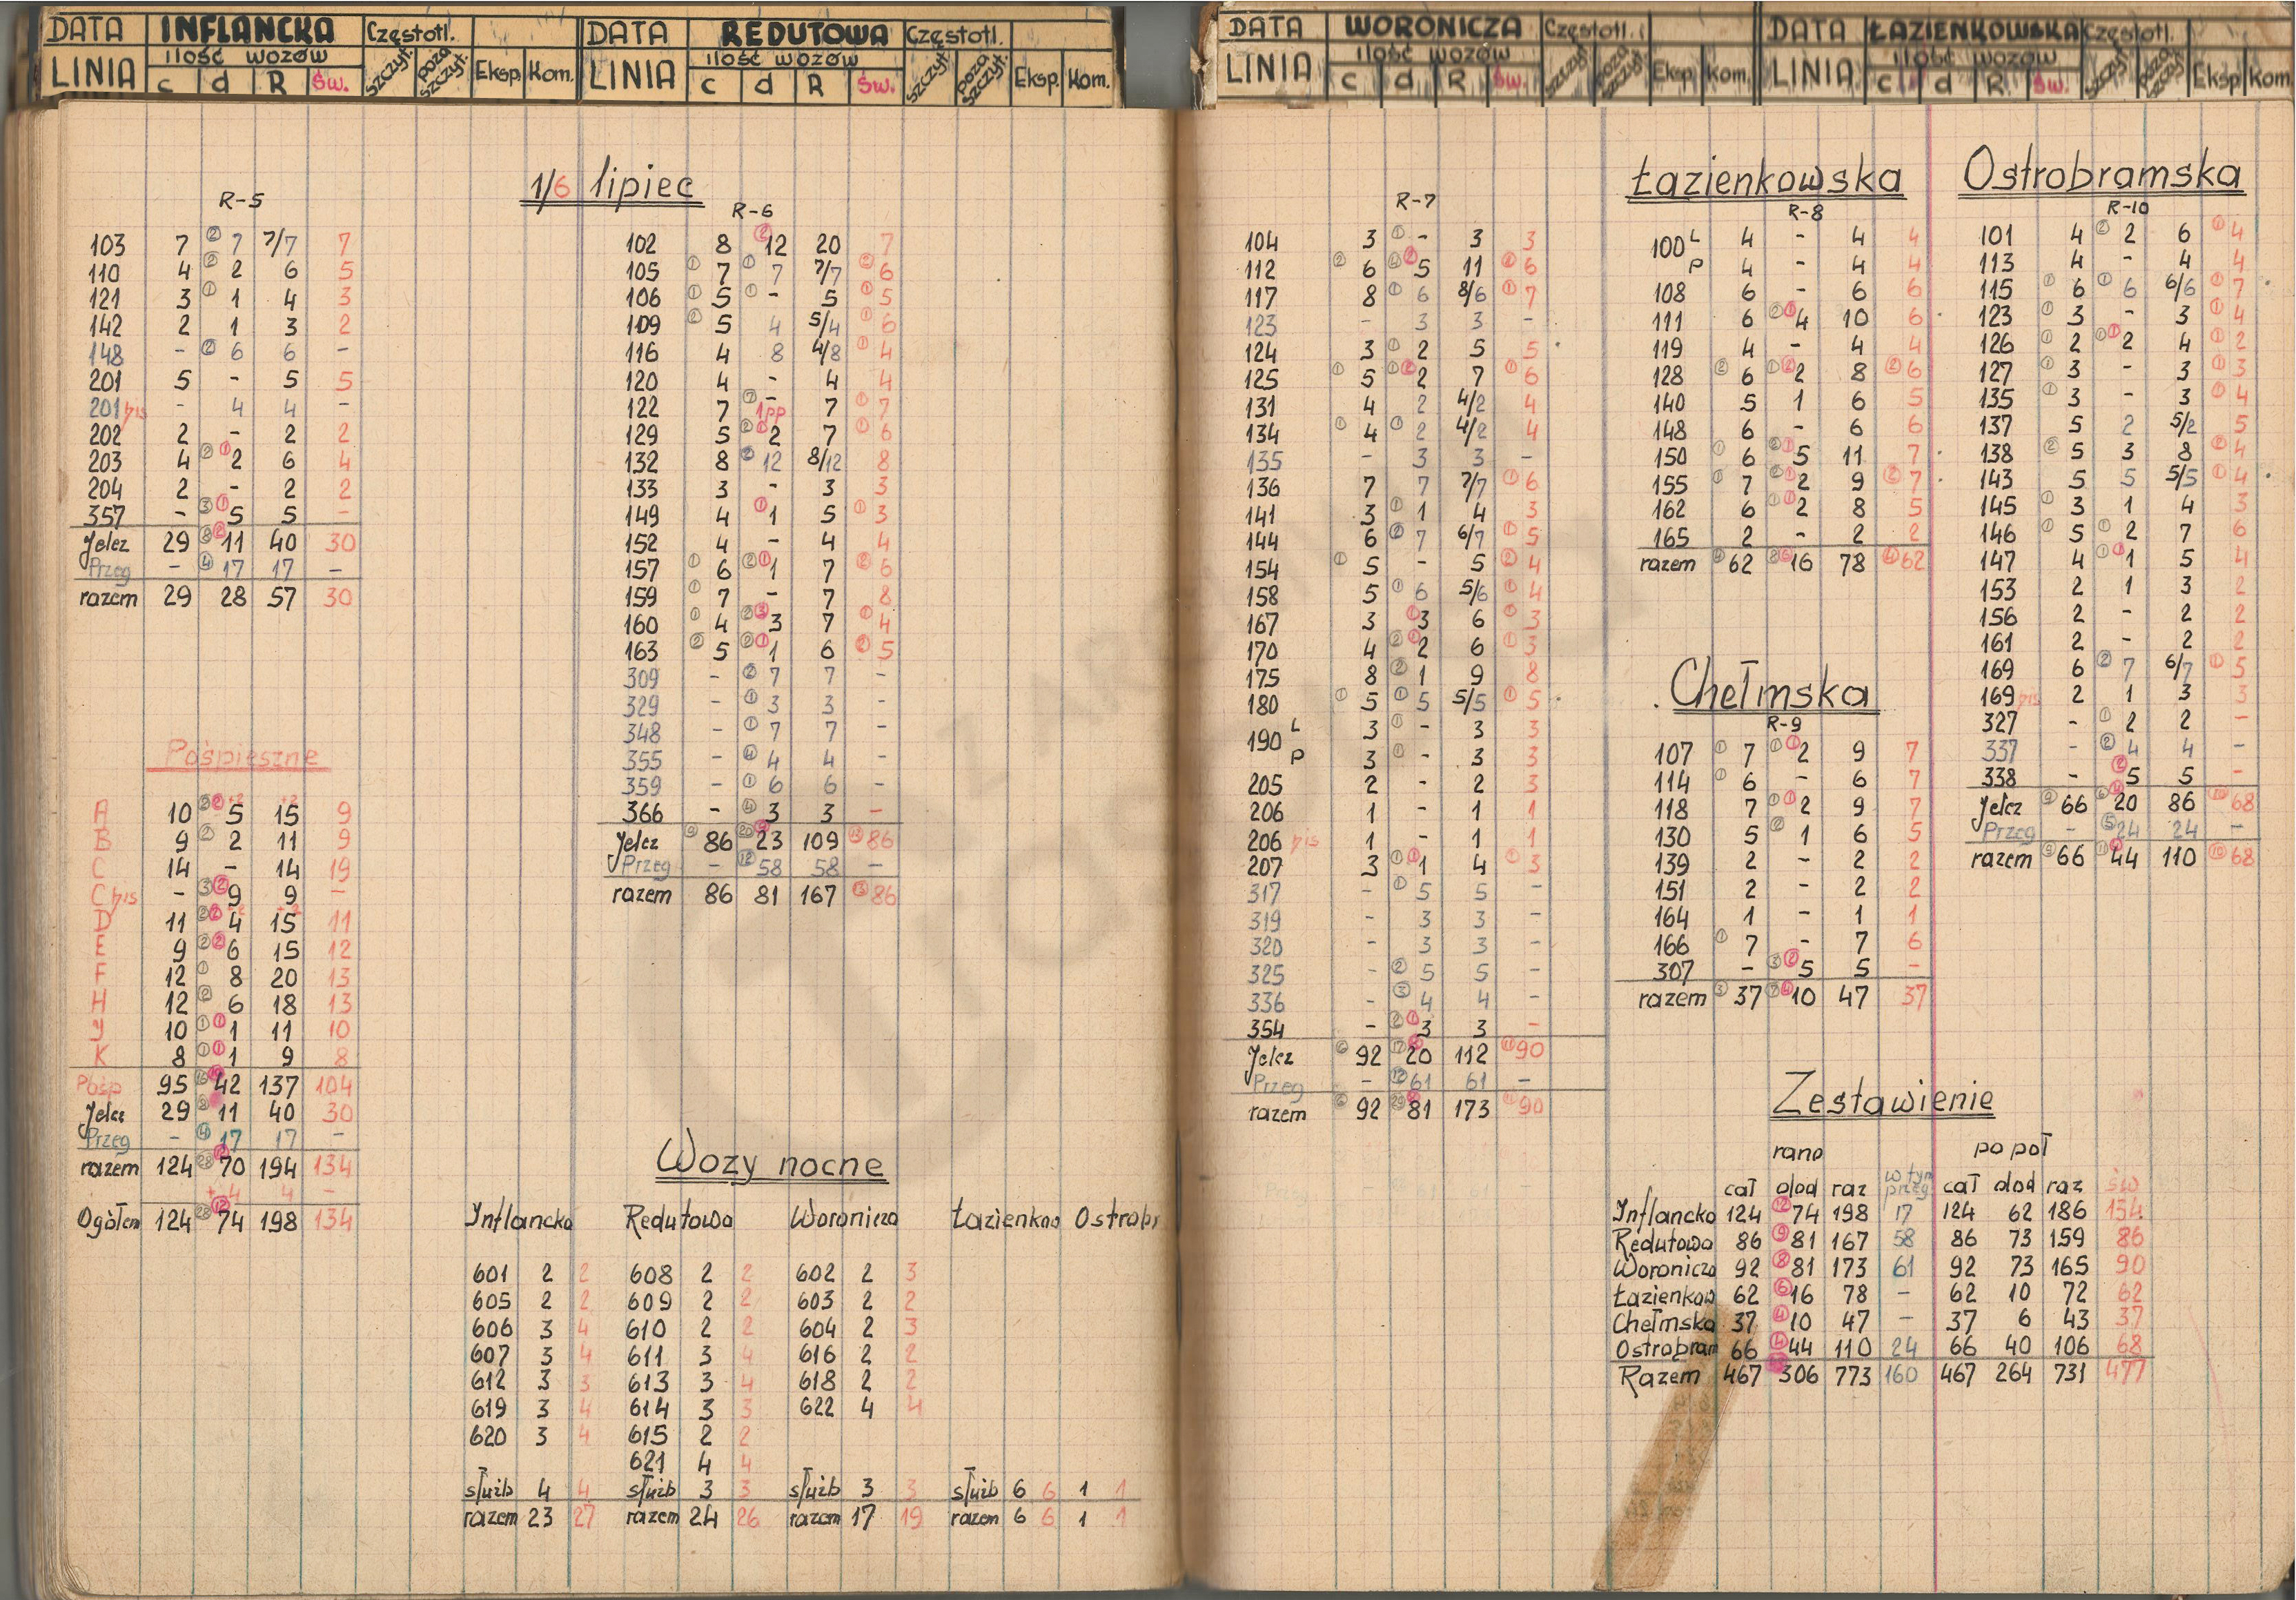 DATA INFLANCKA Częstotl. DATA REDUTOWA Częstotl.
LINIA ilość wozów c d R Św. szczyt. poza szczyt. Eksp. Kom. LINIA ilość wozów c d R Św. szczyt. poza szczyt. Eksp. Kom.
DATA WORONICZA Częstotl. DATA ŁAZIENKOWSKA Częstotl.
LINIA ilość wozów c d R Św. szczyt. poza szczyt. Eksp. Kom. LINIA ilość wozów c d R Św. szczyt. poza szczyt. Eksp. Kom.
1/6 lipiec
R-5
103 7 ② 7 7/7 7
110 4 ② 2 6 5
121 3 ① 1 4 3
142 2 1 3 2
148 - ② 6 6 -
201 5 - 5 5
201 bis - 4 4 -
202 2 - 2 2
203 4 ② ① 2 6 4
204 2 - 2 2
357 - ③ ① 5 5 -
Jelcz 29 ⑧ ② 11 40 30
Przeg - ④ 17 17 -
razem 29 28 57 30
Pośpieszne
A 10 ② ② 5 +2 15 +2 9
B 9 ② 2 11 9
C 14 - 14 19
C bis - ③ ② 9 9 -
D 11 ② ② 4 +2 15 +2 11
E 9 ② ② 6 15 12
F 12 ① 8 20 13
H 12 ② 6 18 13
J 10 ① ① 1 11 10
K 8 ① ① 1 9 8
Pośp 95 ⑯ ⑩ 42 137 104
Jelcz 29 ⑧ 11 40 30
Przeg - ④ 17 17 -
razem 124 ㉘ ⑫ 70 194 134
+4 4 -
Ogółem 124 ㉘ ⑫ 74 198 134
R-6
102 8 ② 12 20 7
105 ① 7 ① 7 7/7 ② 6
106 ① 5 ① - 5 ① 5
109 ② 5 4 5/4 ① 6
116 4 8 4/8 ① 4
120 4 - 4 4
122 7 ⑦ - 1pp 7 ① 7
129 5 ② ① 2 7 ① 6
132 8 ② 12 8/12 8
133 3 - 3 3
149 4 ① 1 5 ① 3
152 4 - 4 4
157 ① 6 ② ① 1 7 ② 6
159 ① 7 - 7 8
160 ① 4 ② ③ 3 7 ① 4
163 ② 5 ② ① 1 6 ② 5
309 - ② 7 7 -
329 - ① 3 3 -
348 - ① 7 7 -
355 - ④ 4 4 -
359 - ① 6 6 -
366 - ④ 3 3 -
Jelcz ⑨ 86 ⑳ ⑨ 23 109 ⑬ 86
Przeg - ⑫ 58 58 -
razem 86 81 167 ⑬ 86
Wozy nocne
Inflancka Redutowa Woronicza Łazienkow Ostrobr
601 2 2 608 2 2 602 2 3
605 2 2 609 2 2 603 2 2
606 3 4 610 2 2 604 2 3
607 3 4 611 3 4 616 2 2
612 3 3 613 3 4 618 2 2
619 3 4 614 3 3 622 4 4
620 3 4 615 2 2
621 4 4
służb 4 4 służb 3 3 służb 3 3 służb 6 6 1 1
razem 23 27 razem 24 26 razem 17 19 razem 6 6 1 1
R-7
104 3 ① - 3 3
112 ② 6 ④ ② 5 11 ② 6
117 8 ① 6 8/6 ① 7
123 - 3 3 -
124 3 ① 2 5 5
125 ① 5 ① ② 2 7 ① 6
131 4 2 4/2 4
134 ① 4 ① 2 4/2 4
135 - 3 3 -
136 7 7 7/7 ① 6
141 3 ① 1 4 3
144 6 ② 7 6/7 ① 5
154 ① 5 - 5 ② 4
158 5 ① 6 5/6 ① 4
167 3 ① 3 6 ① 3
170 4 ② ① 2 6 ① 3
175 8 ② 1 9 8
180 ① 5 ① 5 5/5 ① 5
190 L 3 ① - 3 3
P 3 ① - 3 3
205 2 - 2 3
206 1 - 1 1
206 bis 1 - 1 1
207 3 ① ① 1 4 ① 3
317 - ① 5 5 -
319 - 3 3 -
320 - 3 3 -
325 - ② 5 5 -
336 - ③ 4 4 -
354 - ② ① 3 3 -
Jelcz ⑥ 92 ⑰ ⑧ 20 112 ⑪ 90
Przeg - ⑫ 61 61 -
razem ⑥ 92 ㉙ ⑧ 81 173 ⑪ 90
Łazienkowska
R-8
100 L 4 - 4 4
P 4 - 4 4
108 6 - 6 6
111 6 ② ① 4 10 6
119 4 - 4 4
128 ② 6 ① ② 2 8 ② 6
140 5 1 6 5
148 6 - 6 6
150 ① 6 ② ① 5 11 7
155 ① 7 ② ① 2 9 ② 7
162 6 ① ① 2 8 5
165 2 - 2 2
razem ④ 62 ⑧ ⑥ 16 78 ④ 62
Chełmska
R-9
107 ① 7 ① ① 2 9 7
114 ① 6 - 6 7
118 7 ① ① 2 9 7
130 5 ② 1 6 5
139 2 - 2 2
151 2 - 2 2
164 1 - 1 1
166 ① 7 - 7 6
307 - ③ ② 5 5 -
razem ③ 37 ⑦ ④ 10 47 37
Ostrobramska
R-10
101 4 ② 2 6 ① 4
113 4 - 4 4
115 ① 6 ① 6 6/6 ① 7
123 ① 3 - 3 ① 4
126 ① 2 ① ① 2 4 ① 2
127 ① 3 - 3 ① 3
135 ① 3 - 3 ① 4
137 5 2 5/2 5
138 ② 5 3 8 ② 4
143 5 5 5/5 ① 4
145 ① 3 1 4 3
146 ① 5 ① 2 7 6
147 4 ① ① 1 5 4
153 2 1 3 2
156 2 - 2 2
161 2 - 2 2
169 6 ② 7 6/7 ① 5
169 bis 2 1 3 3
327 - ① 2 2 -
337 - ② 4 4 -
338 - ② 5 5 -
Jelcz ⑨ 66 ⑥ ④ 20 86 ⑩ 68
Przeg - ⑤ 24 24 -
razem ⑨ 66 ⑪ ④ 44 110 ⑩ 68
Zestawienie
rano po poł
cał dod raz w tym przeg cał dod raz św
Inflancka 124 ⑫ 74 198 17 124 62 186 134
Redutowa 86 ⑨ 81 167 58 86 73 159 86
Woronicza 92 ⑧ 81 173 61 92 73 165 90
Łazienkow 62 ⑥ 16 78 - 62 10 72 62
Chełmska 37 ④ 10 47 - 37 6 43 37
Ostrobram 66 ④ 44 110 24 66 40 106 68
Razem 467 306 773 160 467 264 731 477